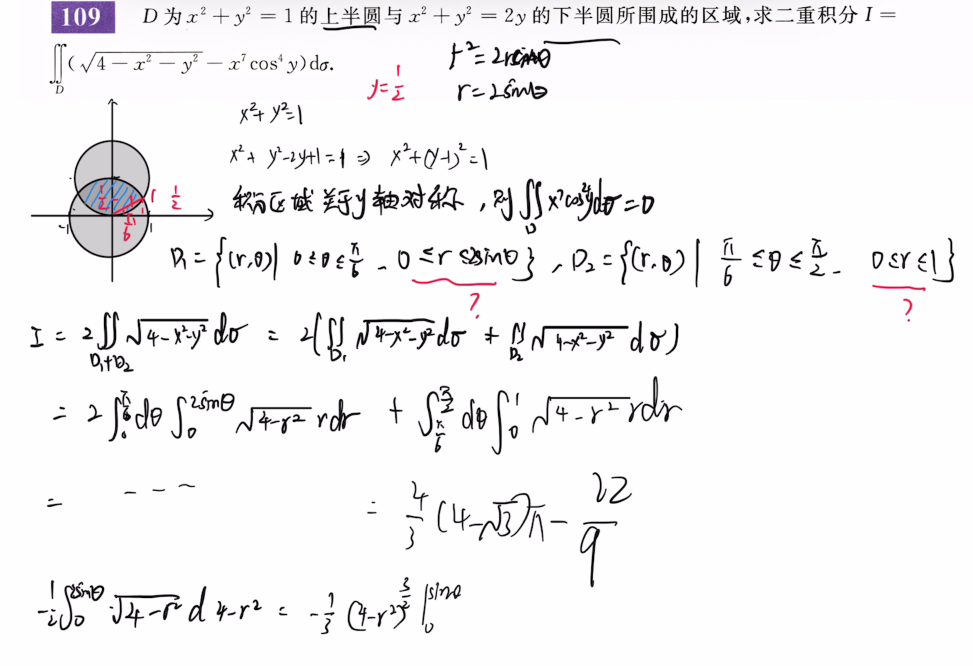 109 D为x²+y²=1的上半圆与x²+y²=2y的下半圆所围成的区域,求二重积分I=
∬_D(√(4-x²-y²)-x⁷cos⁴y)dσ.
y=1/2
r²=2rsinθ
r=2sinθ
x²+y²=1
x²+y²-2y+1=1⇒x²+(y-1)²=1
积分区域关于y轴对称,则∬_D x⁷cos⁴y dσ=0
1/2 1 1/2
-1 π/6 1
D₁={(r,θ)|0≤θ≤π/6、0≤r≤2sinθ},D₂={(r,θ)|π/6≤θ≤π/2、0≤r≤1}
? ?
I=2∬_{D₁+D₂}√(4-x²-y²)dσ=2(∬_{D₁}√(4-x²-y²)dσ+∬_{D₂}√(4-x²-y²)dσ)
=2∫₀^{π/6}dθ∫₀^{2sinθ}√(4-r²)rdr+∫_{π/6}^{π/2}dθ∫₀¹√(4-r²)rdr
= --- =4/3(4-√3)π-22/9
-1/2∫₀^{2sinθ}√(4-r²)d4-r²=-1/3(4-r²)^{3/2}|₀^{sinθ}